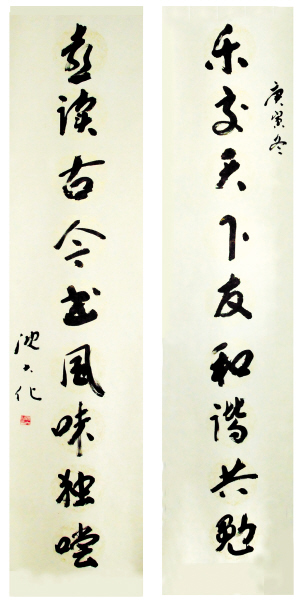 乐交天下友和谐共勉
庚寅冬
喜读古今书风味独尝